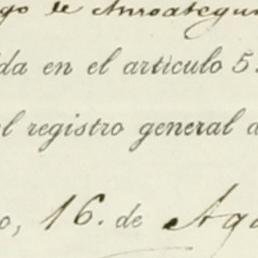 go de Anroategui
da en el artículo 5.
el registro general d
o, 16. de Ago